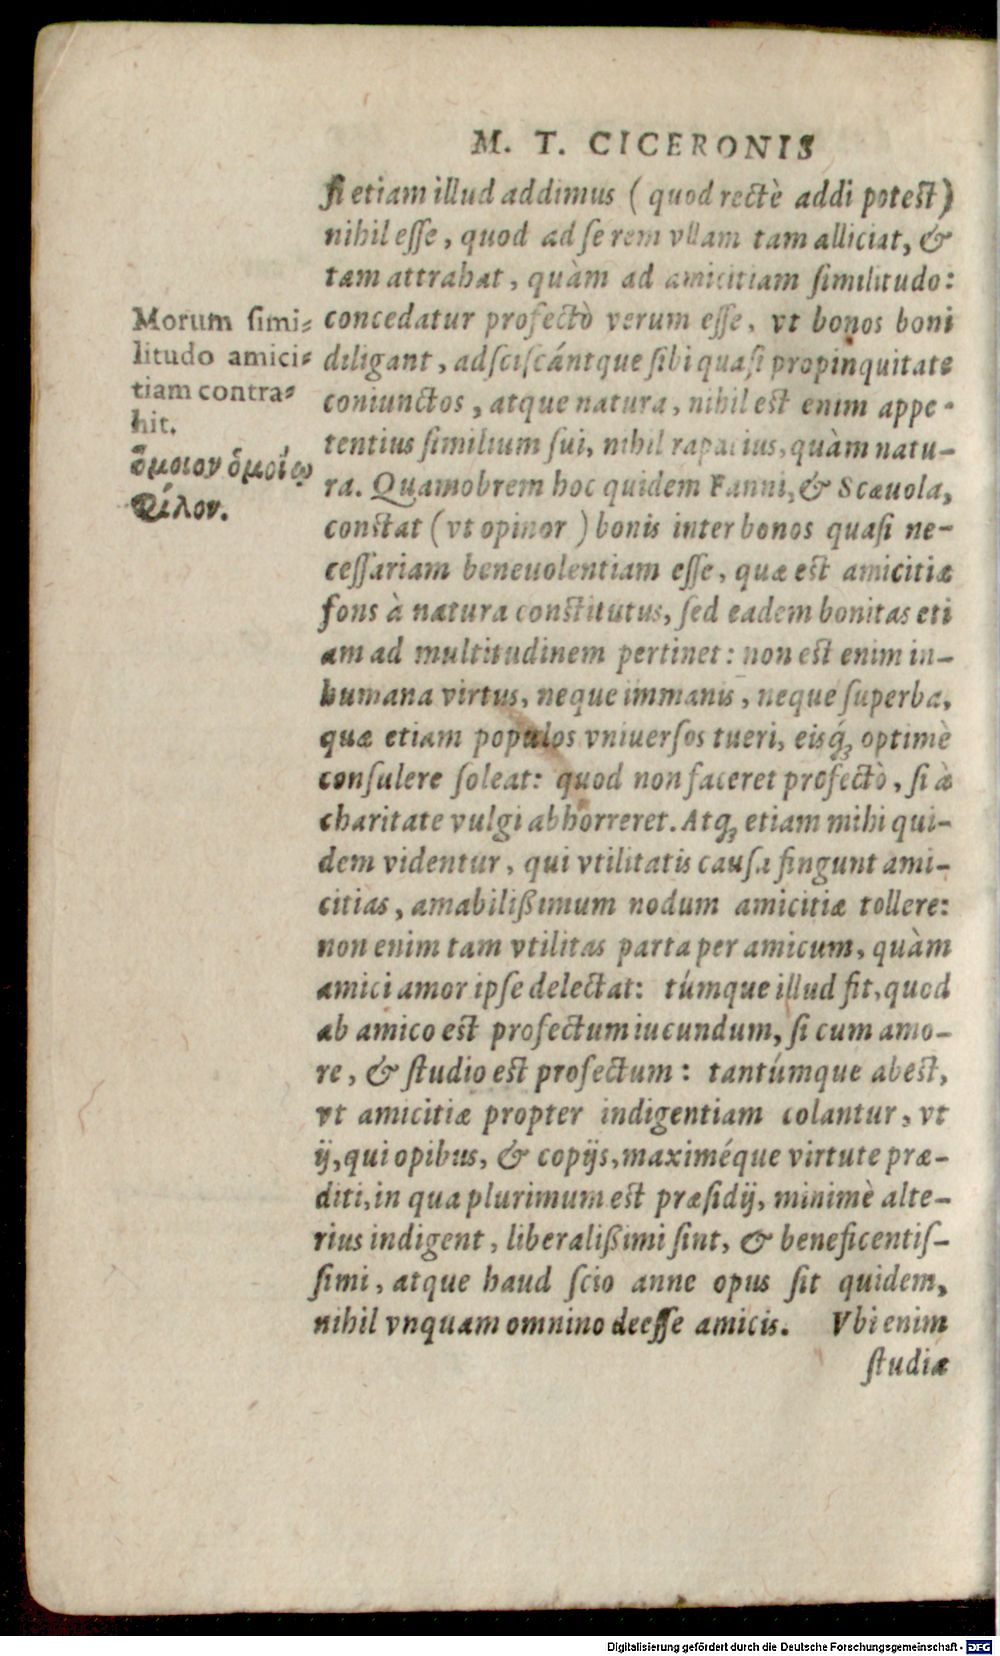 M. T. CICERONIS
ſi etiam illud addimus ( quod rectè addi poteſt)
nihil eſſe, quod ad ſe rem vllam tam alliciat, &
tam attrahat, quàm ad amicitiam ſimilitudo:
concedatur profectò verum eſſe, vt bonos boni
diligant, adſciſcántque ſibi quaſi propinquitate
coniunctos, atque natura, nihil eſt enim appe-
tentius ſimilium ſui, nihil rapacius, quàm natu-
ra. Quamobrem hoc quidem Fanni, & Scæuola,
conſtat (vt opinor ) bonis inter bonos quaſi ne-
ceſſariam beneuolentiam eſſe, quæ eſt amicitiæ
fons à natura conſtitutus, ſed eadem bonitas eti
am ad multitudinem pertinet: non eſt enim in-
humana virtus, neque immanis, neque ſuperba,
quæ etiam populos vniuerſos tueri, eisq́ꝫ optimè
conſulere ſoleat: quod non faceret profectò, ſi à
charitate vulgi abhorreret. Atqꝫ etiam mihi qui-
dem videntur, qui vtilitatis cauſa fingunt ami-
citias, amabilißimum nodum amicitiæ tollere:
non enim tam vtilitas parta per amicum, quàm
amici amor ipſe delectat: túmque illud fit, quod
ab amico eſt profectum iucundum, ſi cum amo-
re, & ſtudio eſt profectum: tantúmque abeſt,
vt amicitiæ propter indigentiam colantur, vt
ij, qui opibus, & copijs, maximéque virtute præ-
diti, in qua plurimum eſt præſidij, minimè alte-
rius indigent, liberalißimi ſint, & beneficentiſ-
ſimi, atque haud ſcio anne opus ſit quidem,
nihil vnquam omnino deeſſe amicis. Vbi enim
ſtudia
Morum ſimi-
litudo amici-
tiam contra-
hit.
ὅμοιον ὁμοίῳ
φίλον.
Digitalisierung gefördert durch die Deutsche Forschungsgemeinschaft - DFG